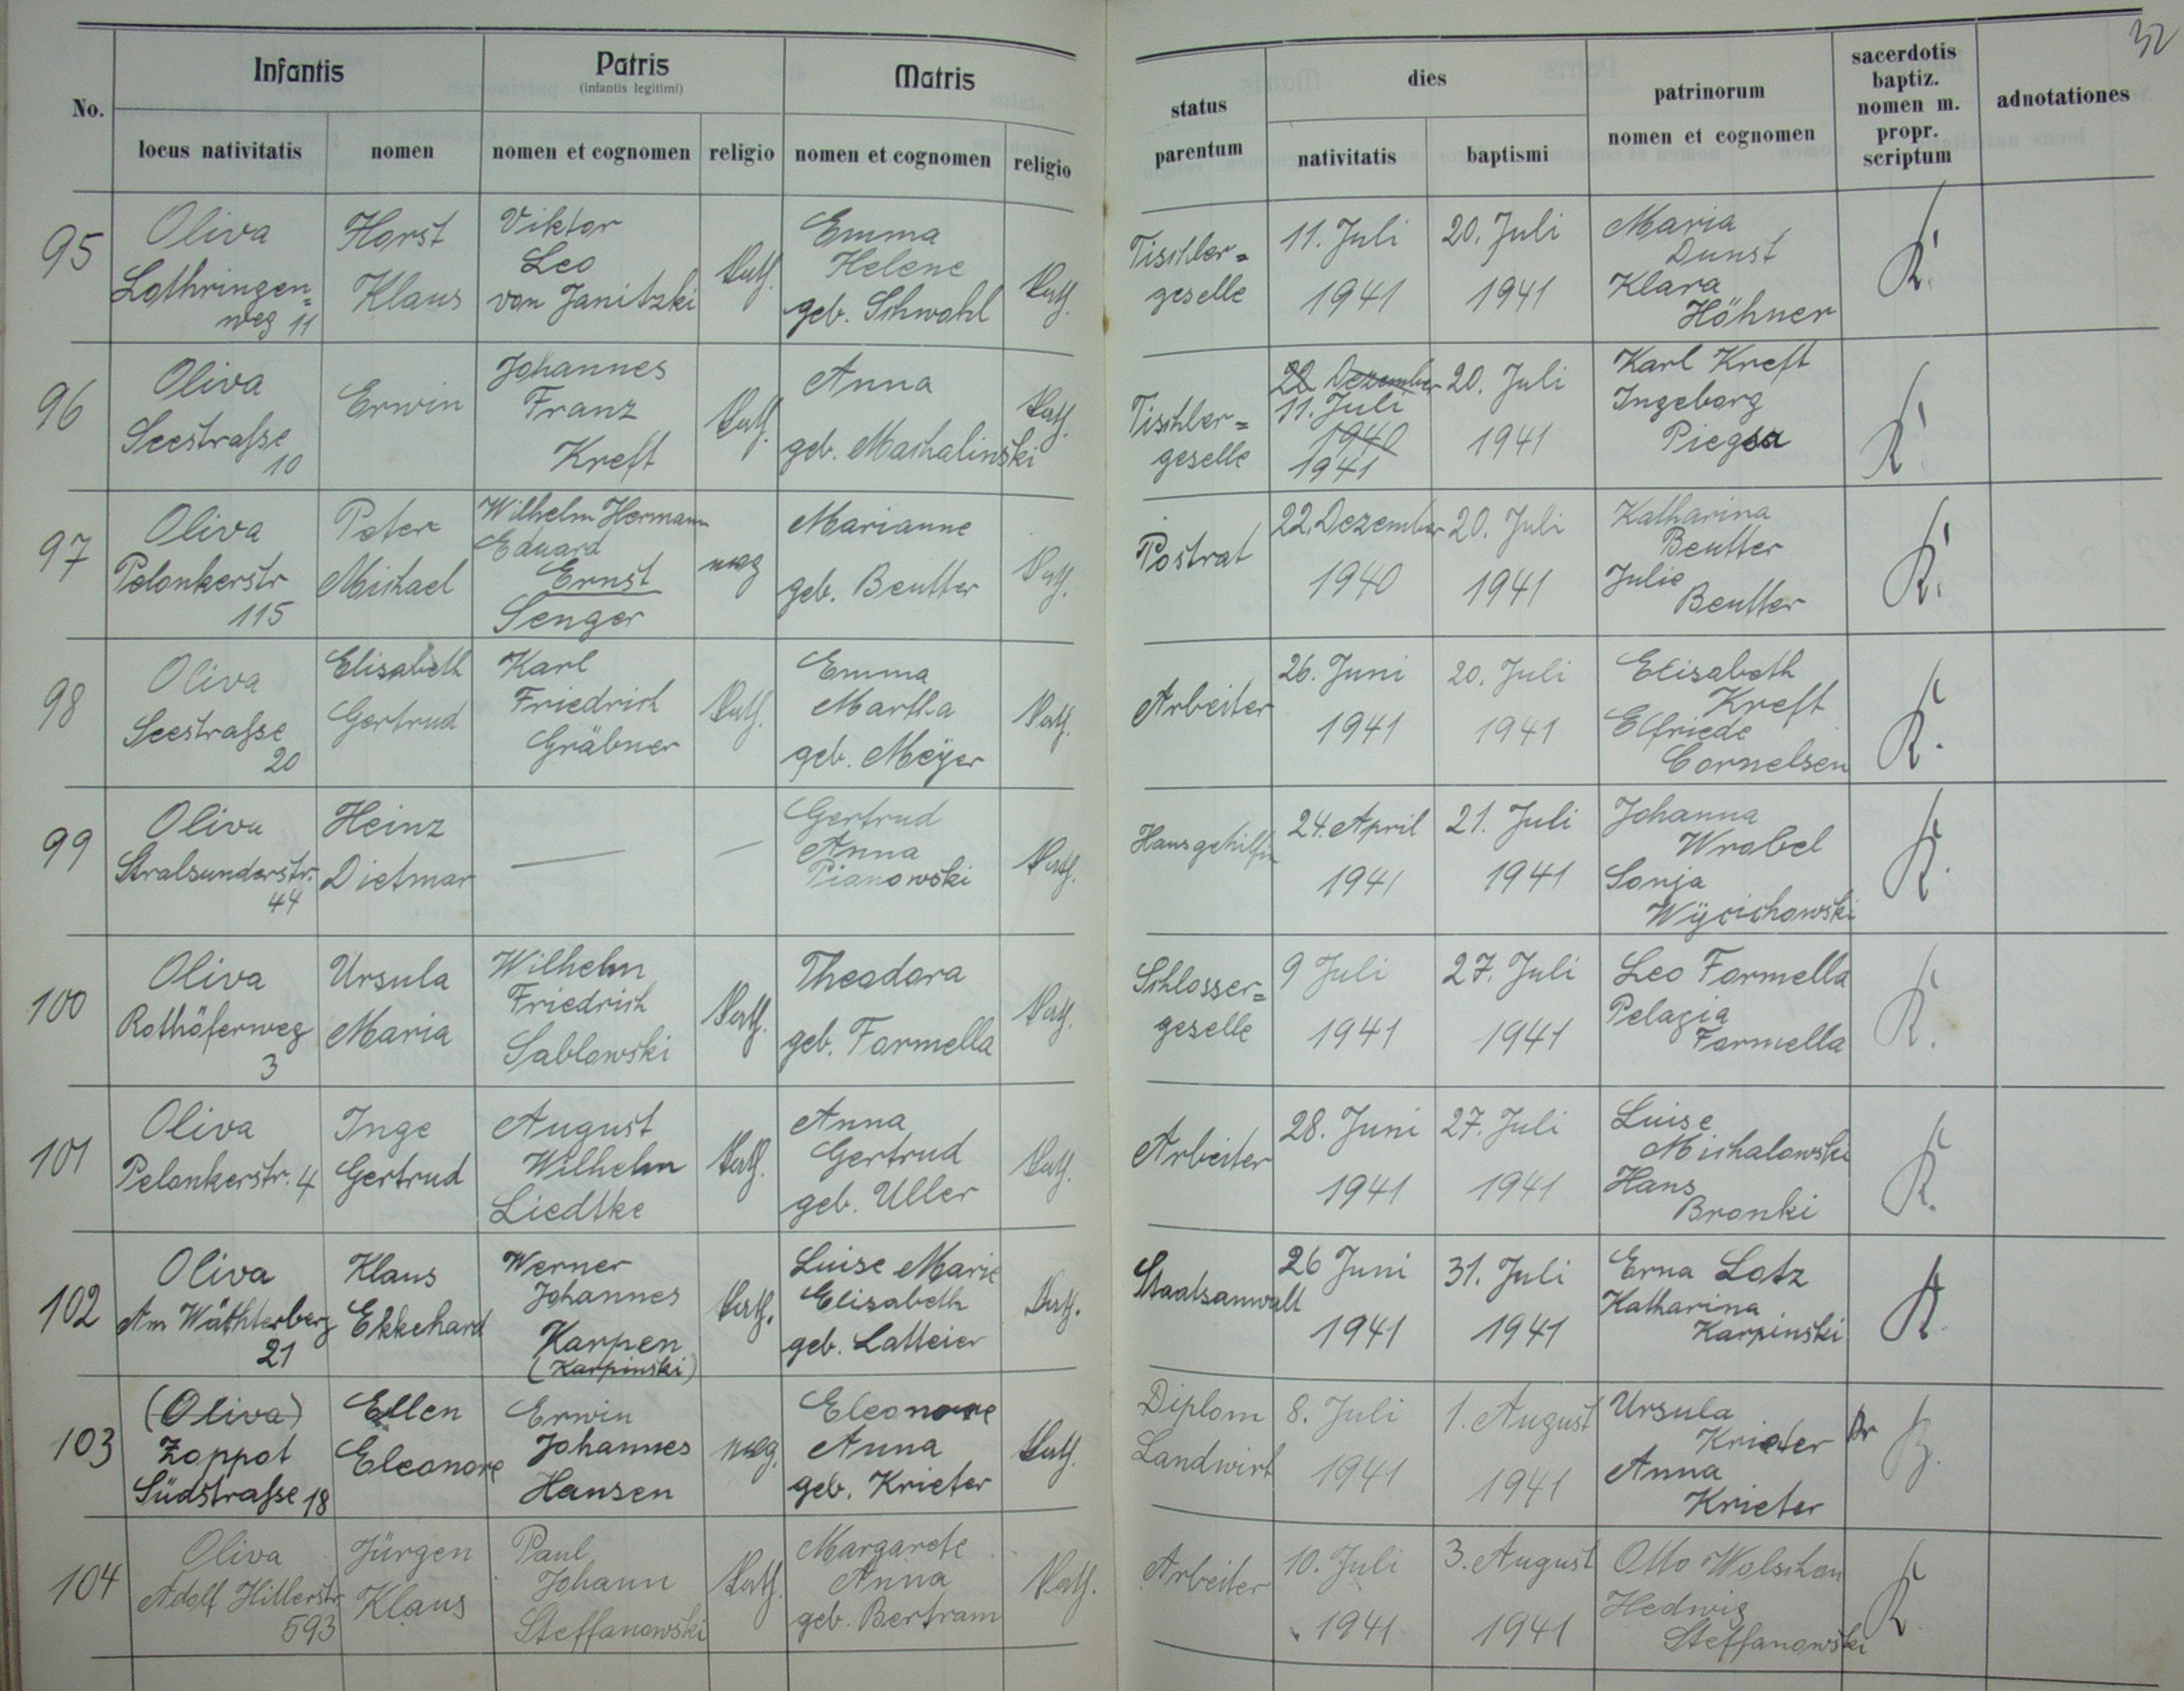 32
No.
Infantis
Patris
(infantis legitimi)
Matris
status parentum
dies
patrinorum
nomen et cognomen
sacerdotis
baptiz.
nomen m.
propr.
scriptum
adnotationes
locus nativitatis
nomen
nomen et cognomen
religio
nomen et cognomen
religio
nativitatis
baptismi
95
Oliva
Lothringen=
weg 11
Horst
Klaus
Viktor
Leo
von Janitzki
kath.
Emma
Helene
geb. Schwohl
kath.
Tischler=
geselle
11. Juli
1941
20. Juli
1941
Maria
Dunst
Klara
Höhner
K.
96
Oliva
Seestraße
10
Erwin
Johannes
Franz
Kreft
kath.
Anna
geb. Machalinski
kath.
Tischler=
geselle
22. Dezember
11. Juli
1940
1941
20. Juli
1941
Karl Kreft
Ingeborg
Piegsa
K.
97
Oliva
Pelonkerstr
115
Peter
Michael
Wilhelm Hermann
Eduard
Ernst
Senger
Marianne
geb. Beutter
kath.
Postrat
22. Dezember
1940
20. Juli
1941
Katharina
Beutter
Julie
Beutter
K.
98
Oliva
Seestraße
20
Elisabeth
Gertrud
Karl
Friedrich
Gräbner
kath.
Emma
Martha
geb. Meÿer
kath.
Arbeiter
26. Juni
1941
20. Juli
1941
Elisabeth
Kreft
Elfriede
Cornelsen
K.
99
Oliva
Stralsunderstr.
44
Heinz
Dietmar
—
—
Gertrud
Anna
Pianowski
kath.
Hausgehilfin
24. April
1941
21. Juli
1941
Johanna
Wrobel
Sonja
Wÿcichowski
K.
100
Oliva
Rothöferweg
3
Ursula
Maria
Wilhelm
Friedrich
Sablowski
kath.
Theodora
geb. Formella
kath.
Schlosser=
geselle
9 Juli
1941
27. Juli
1941
Leo Formella
Pelagia
Formella
K.
101
Oliva
Pelonkerstr. 4
Inge
Gertrud
August
Wilhelm
Liedtke
kath.
Anna
Gertrud
geb. Uller
kath.
Arbeiter
28. Juni
1941
27. Juli
1941
Luise
Michalowski
Hans
Bronki
K.
102
Oliva
Am Wächterberg
21
Klaus
Ekkehard
Werner
Johannes
Karpen
(Karpinski)
kath.
Luise Marie
Elisabeth
geb. Latteier
kath.
Staatsanwalt
26 Juni
1941
31. Juli
1941
Erna Lotz
Katharina
Karpinski
K.
103
(Oliva)
Zoppot
Südstraße 18
Ellen
Eleonore
Erwin
Johannes
Hansen
Eleonore
Anna
geb. Krieter
kath.
Diplom
Landwirt
8. Juli
1941
1. August
1941
Ursula
Krieter
Anna
Krieter
104
Oliva
Adolf Hitlerstr.
593
Jürgen
Klaus
Paul
Johann
Steffanowski
kath.
Margarete
Anna
geb. Bertram
kath.
Arbeiter
10. Juli
1941
3. August
1941
Otto Wolschon
Hedwig
Steffanowski
K